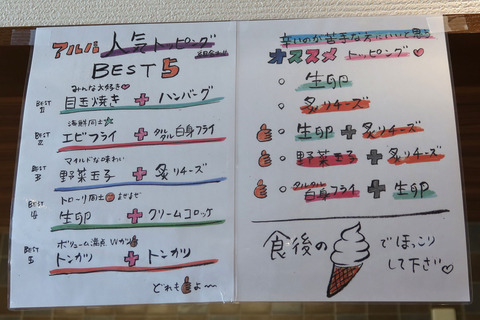 アルバ 人気トッピング
BEST 5
みんな大好き♡
BEST 1 目玉焼き + ハンバーグ
海鮮同士☆
BEST 2 エビフライ + タルタル白身フライ
マイルドな味わい
BEST 3 野菜玉子 + 炙りチーズ
トローリ同士 まぜまぜ
BEST 4 生卵 + クリームコロッケ
ボリューム満点 Wカツ
BEST 5 トンカツ + トンカツ
どれも よ〜
辛いのが苦手な方にいいと思う
オススメ トッピング♡
○ 生卵
○ 炙りチーズ
○ 生卵 + 炙りチーズ
○ 野菜玉子 + 炙りチーズ
○ タルタル白身フライ + 生卵
食後の でほっこり
して下さい♡